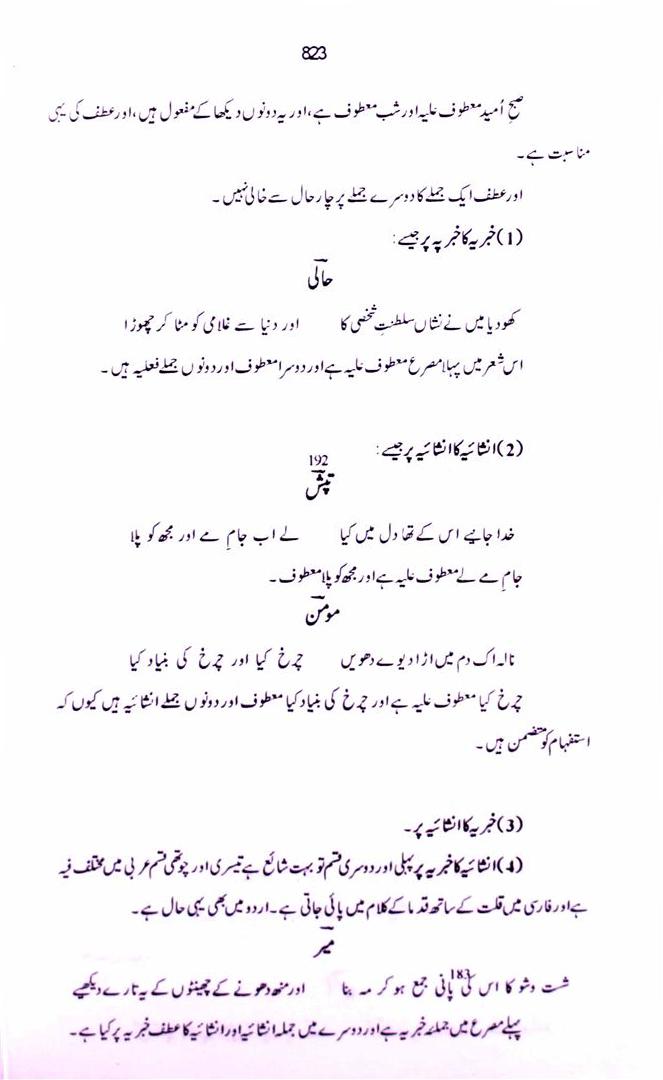 823
صبحِ اُمید معطوف علیہ اور شب معطوف ہے، اور یہ دونوں دیکھا کے مفعول ہیں، اور عطف کی یہی
مناسبت ہے۔
اور عطف ایک جملے کا دوسرے جملے پر چار حال سے خالی نہیں۔
(1) خبریہ کا خبریہ پر جیسے:
حالی
کھو دیا میں نے نشاں سلطنتِ شخصی کا اور دنیا سے غلامی کو مٹا کر چھوڑا
اس شعر میں پہلا مصرع معطوف علیہ ہے اور دوسرا معطوف اور دونوں جملے فعلیہ ہیں۔
(2) انشائیہ کا انشائیہ پر جیسے:
192
تپش
خدا جانیے اس کے تھا دل میں کیا لے اب جامِ مے اور مجھ کو پلا
جامِ مے لے معطوف علیہ ہے اور مجھ کو پلا معطوف۔
مومن
نالہ اک دم میں اڑا دیوے دھویں چرخ کیا اور چرخ کی بنیاد کیا
چرخ کیا معطوف علیہ ہے اور چرخ کی بنیاد کیا معطوف اور دونوں جملے انشائیہ ہیں کیوں کہ
استفہام کو متضمن ہیں۔
(3) خبریہ کا انشائیہ پر۔
(4) انشائیہ کا خبریہ پر پہلی اور دوسری قسم تو بہت شائع ہے تیسری اور چوتھی قسم عربی میں مختلف فیہ
ہے اور فارسی میں قلت کے ساتھ قدما کے کلام میں پائی جاتی ہے۔ اردو میں بھی یہی حال ہے۔
میر
شست وشو کا اس کی 183 پانی جمع ہو کر مہ بنا اور منھ دھونے کے چھینٹوں کے یہ تارے دیکھیے
پہلے مصرع میں جملۂ خبریہ ہے اور دوسرے میں جملہ انشائیہ اور انشائیہ کا عطف خبریہ پر کیا ہے۔